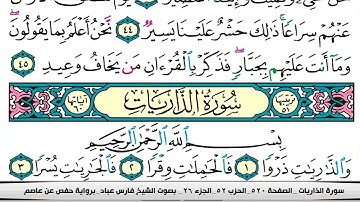 عَنْهُمْ سِرَاعًا ذَٰلِكَ حَشْرٌ عَلَيْنَا يَسِيرٌ ٤٤ نَّحْنُ أَعْلَمُ بِمَا يَقُولُونَ
وَمَا أَنتَ عَلَيْهِم بِجَبَّارٍ فَذَكِّرْ بِالْقُرْءَانِ مَن يَخَافُ وَعِيدِ ٤٥
ترتيبها ٥١ سُورَةُ الذَّارِيَاتِ آياتها ٦٠
بِسْمِ اللَّهِ الرَّحْمَٰنِ الرَّحِيمِ
وَالذَّارِيَاتِ ذَرْوًا ١ فَالْحَامِلَاتِ وِقْرًا ٢ فَالْجَارِيَاتِ يُسْرًا ٣
سورة الذاريات _ الصفحة ٥٢٠ _ الحزب ٥٢ _ الجزء ٢٦ _ بصوت الشيخ فارس عباد _ برواية حفص عن عاصم